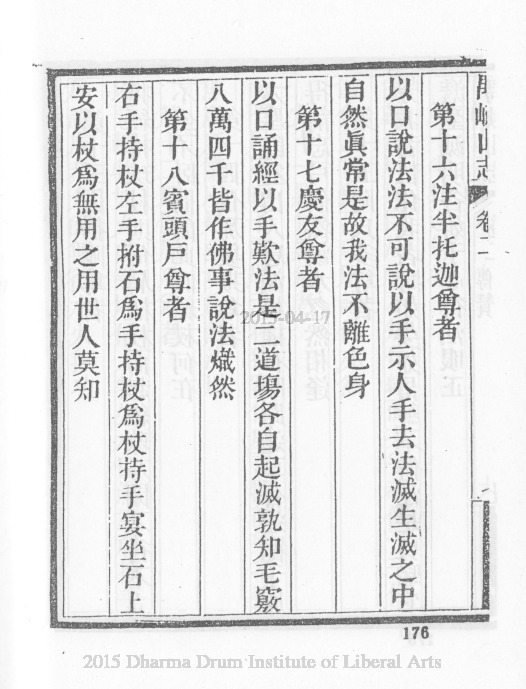 禺峽山志 卷二
第十六注半托迦尊者
以口說法法不可說以手示人手去法滅生滅之中
自然眞常是故我法不離色身
第十七慶友尊者
以口誦經以手歎法是二道塲各自起滅孰知毛竅
八萬四千皆作佛事說法熾然
第十八賓頭戶尊者
右手持杖左手拊石爲手持杖爲杖持手宴坐石上
安以杖爲無用之用世人莫知
2015-04-17
176
2015 Dharma Drum Institute of Liberal Arts